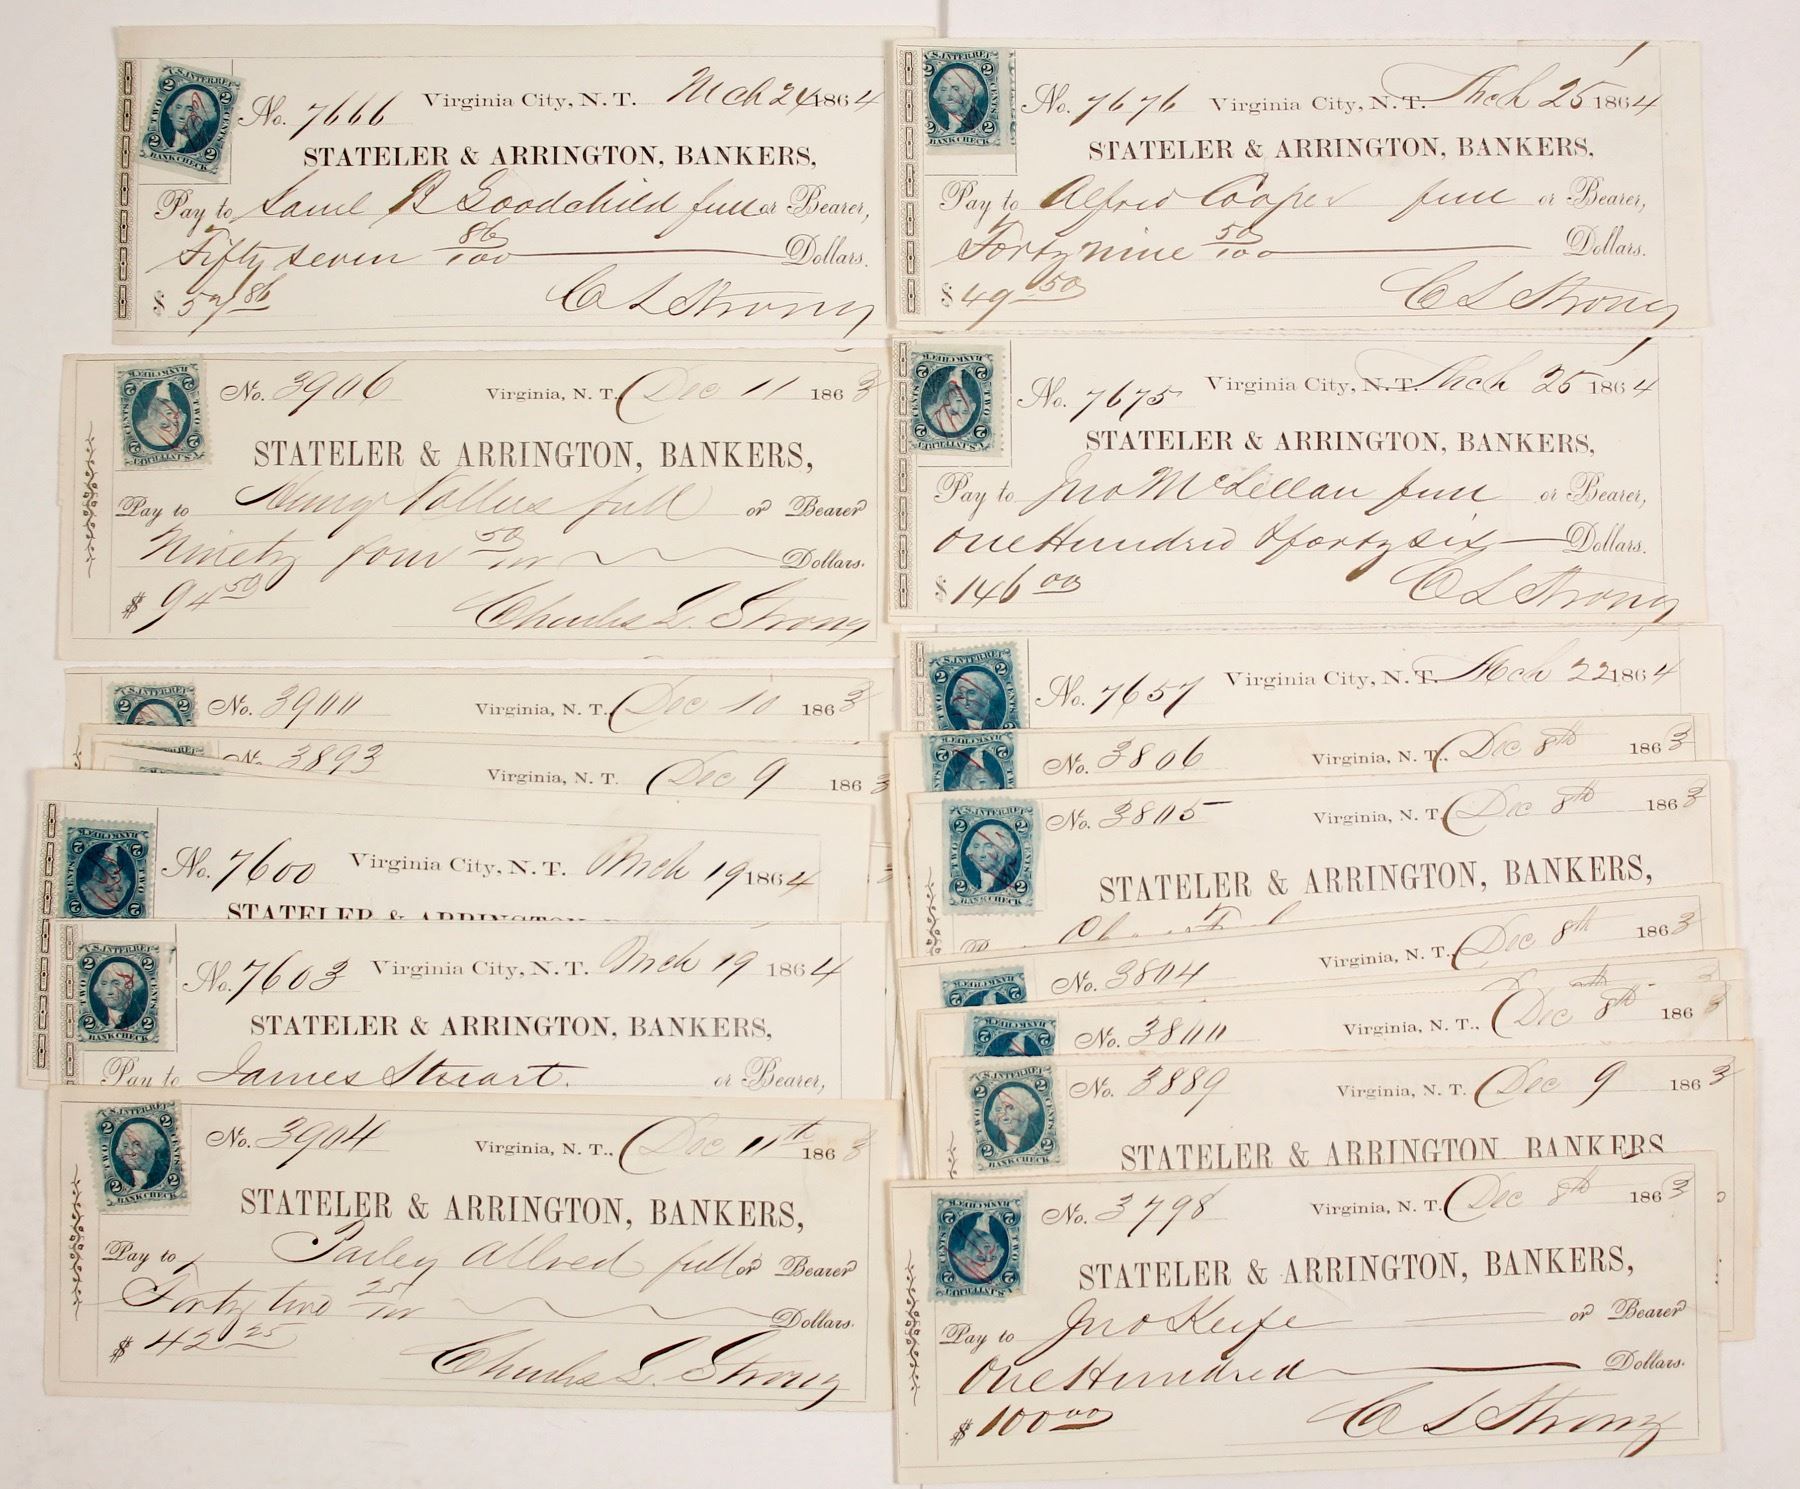 U.S. INTER. REV.
TWO CENTS
BANK CHECK
No. 7666 Virginia City, N. T. Mch 24 1864
STATELER & ARRINGTON, BANKERS,
Pay to Saml B Goodchild full or Bearer,
Fifty seven 86/100 Dollars.
$ 57 86
C L Strong
No. 3906 Virginia, N. T. Dec 11 1863
STATELER & ARRINGTON, BANKERS,
Pay to Henry full or Bearer
Ninety four 50/100 Dollars.
$ 94 50
Charles L. Strong
No. 3900 Virginia, N. T., Dec 10 1863
No. 3893 Virginia, N. T. Dec 9 1863
No. 7600 Virginia City, N. T. Mch 19 1864
STATELER & ARRINGTON
No. 7603 Virginia City, N. T. Mch 19 1864
STATELER & ARRINGTON, BANKERS,
Pay to James Stuart. or Bearer,
No. 3904 Virginia, N. T., Dec 11th 1863
STATELER & ARRINGTON, BANKERS,
Pay to Parley Allred full or Bearer
Forty two 25/100 Dollars.
$ 42 25
Charles L. Strong
No. 7676 Virginia City, N. T. Mch 25 1864
STATELER & ARRINGTON, BANKERS,
Pay to Alfred Cooper full or Bearer,
Forty nine 50/100 Dollars.
$ 49.50
C L Strong
No. 7675 Virginia City, N. T. Mch 25 1864
STATELER & ARRINGTON, BANKERS,
Pay to Jno McLellan full or Bearer,
One Hundred & forty six Dollars.
$ 146 00
C L Strong
No. 7657 Virginia City, N. T. Mch 22 1864
No. 3806 Virginia, N. T., Dec 8th 1863
No. 3805 Virginia, N. T. Dec 8th 1863
STATELER & ARRINGTON, BANKERS,
No. 3804 Virginia, N. T., Dec 8th 1863
No. 3800 Virginia, N. T., Dec 8th 1863
No. 3889 Virginia, N. T. Dec 9 1863
STATELER & ARRINGTON, BANKERS
No. 3798 Virginia, N. T. Dec 8th 1863
STATELER & ARRINGTON, BANKERS,
Pay to Jno Keife or Bearer
One Hundred Dollars.
$ 100 00
C L Strong